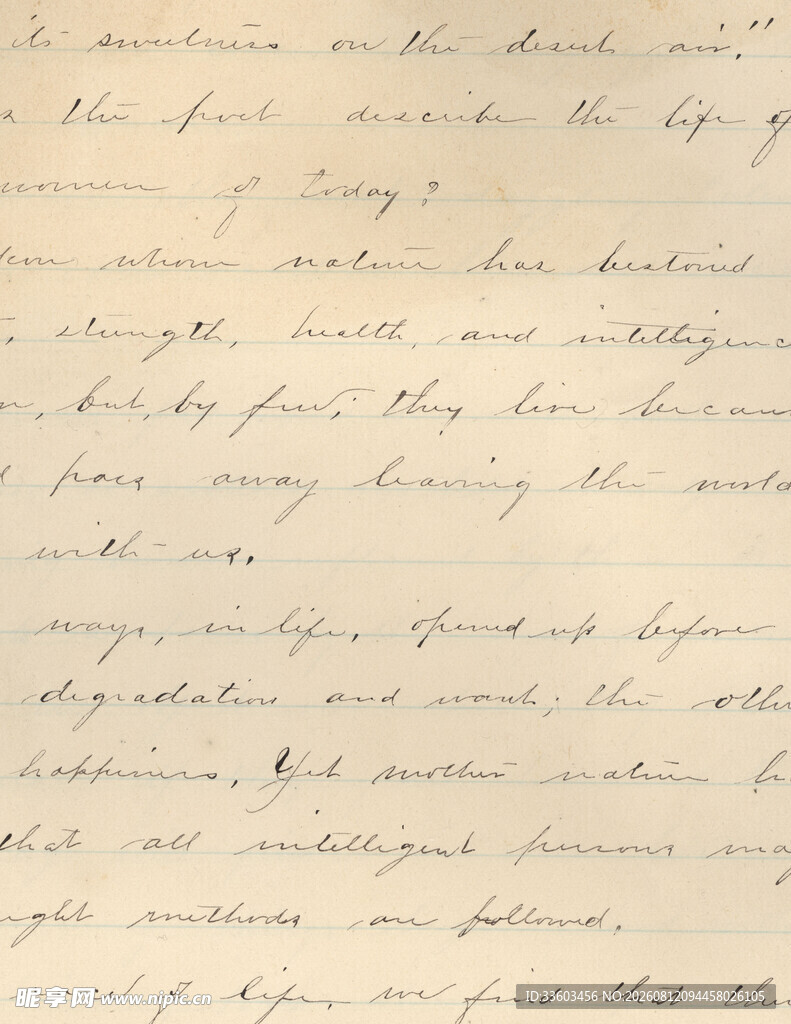 its sweetness on the desert air."
the poet describe the life of
women of today?
whom nature has bestowed
, strength, health, and intelligenc
, but, by few; they live becaus
pass away leaving the world
with us.
ways, in life, opened up before
degradation and want; the othe
happiness, Yet mother nature h
that all intelligent persons may
ight methods are followed.
of life, we find that the
昵享网 www.nipic.cn
ID:33603456 NO:20260812094458026105